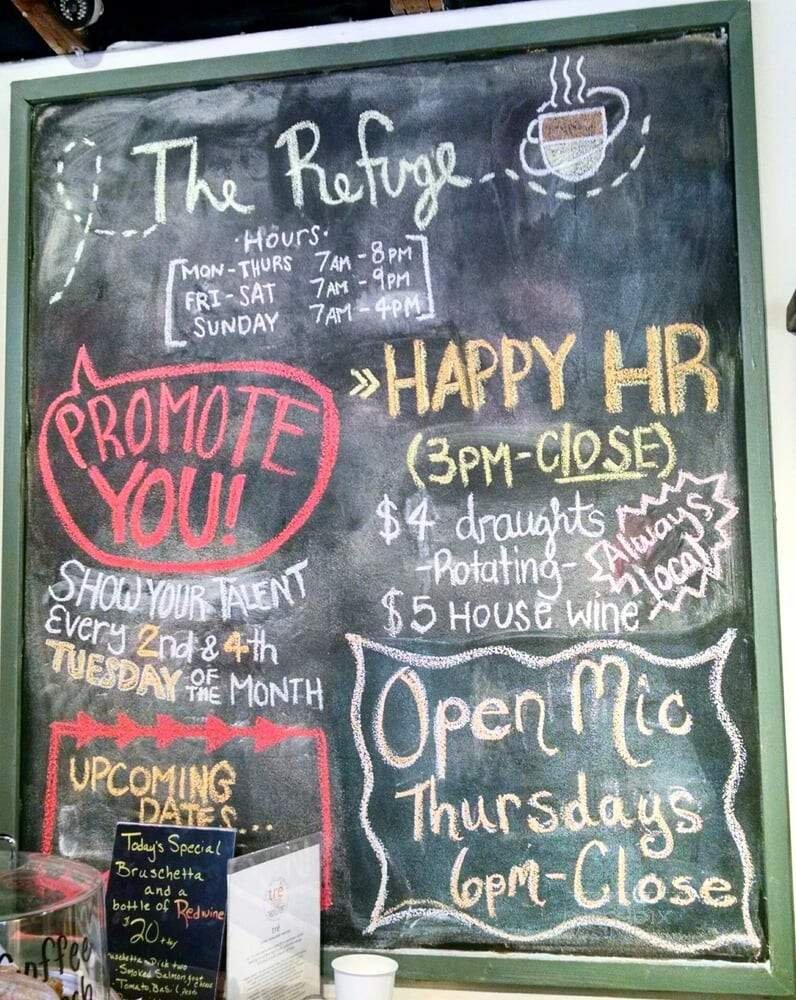 The Refuge
·Hours·
MON-THURS 7AM-8PM
FRI-SAT 7AM-9PM
SUNDAY 7AM-4PM
PROMOTE
YOU!
SHOW YOUR TALENT
Every 2nd & 4th
TUESDAY OF THE MONTH
UPCOMING
DATES...
» HAPPY HR
(3PM-CLOSE)
$4 draughts
-Rotating-
Always local
$5 House wine
Open Mic
Thursdays
6pm-Close
Today's Special
Bruschetta
and a
bottle of Red wine
$20
Smoked Salmon
Tomato, Basil
tré